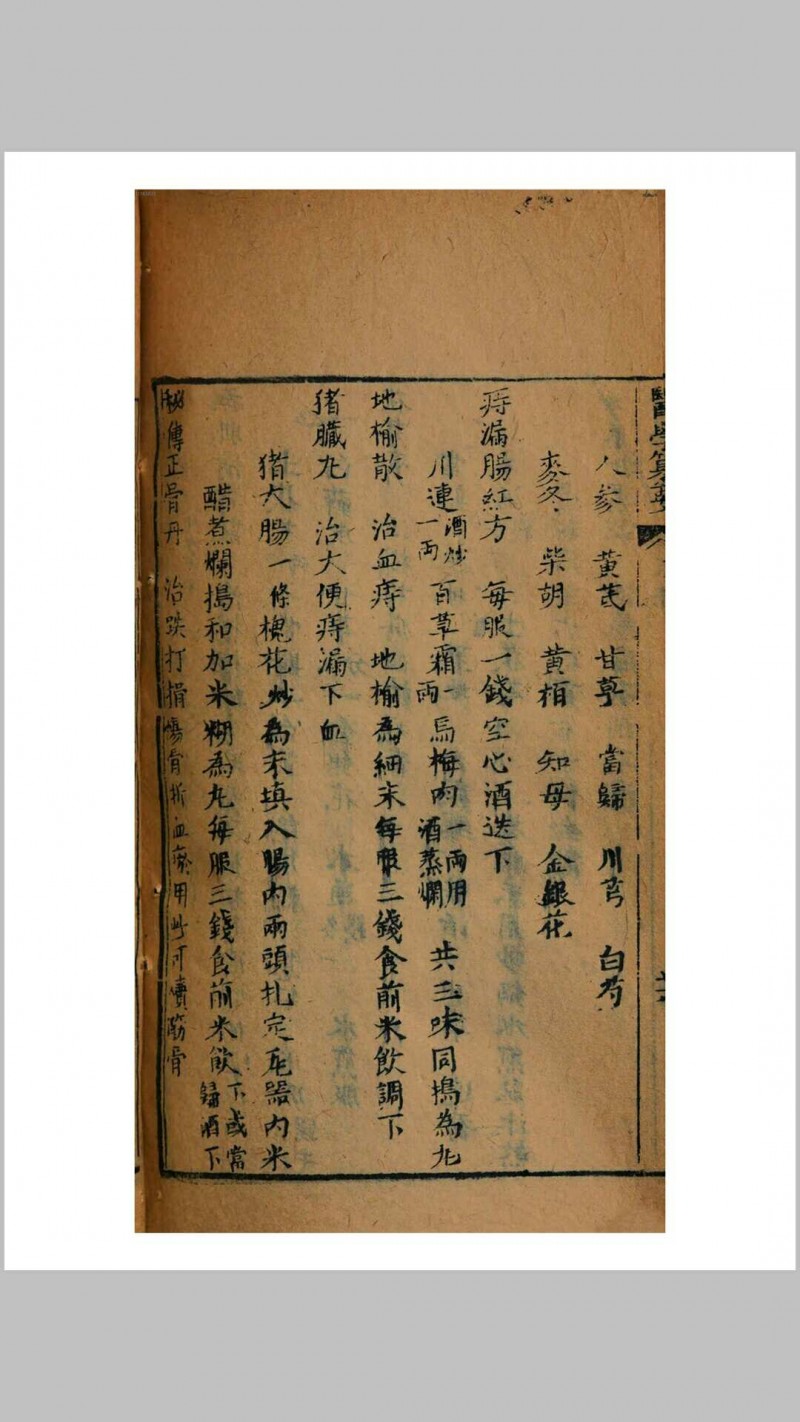 醫學纂要
人參　黃芪　甘草　當歸　川芎　白芍
麥冬　柴胡　黃栢　知母　金銀花
痔漏腸紅方　每服一錢空心酒送下
川連酒炒一兩百草霜一兩烏梅肉一兩用酒蒸爛　共三味同搗為丸
地榆散　治血痔　地榆為細末每服三錢食前米飲調下
猪臟丸　治大便痔漏下血
猪大腸一條槐花炒為末填入腸內兩頭扎定瓦器內米
醋煮爛搗和加米糊為丸每服三錢食前米飲下或當歸酒下
秘傳正骨丹　治跌打損傷骨折血瘀用此可續筋骨